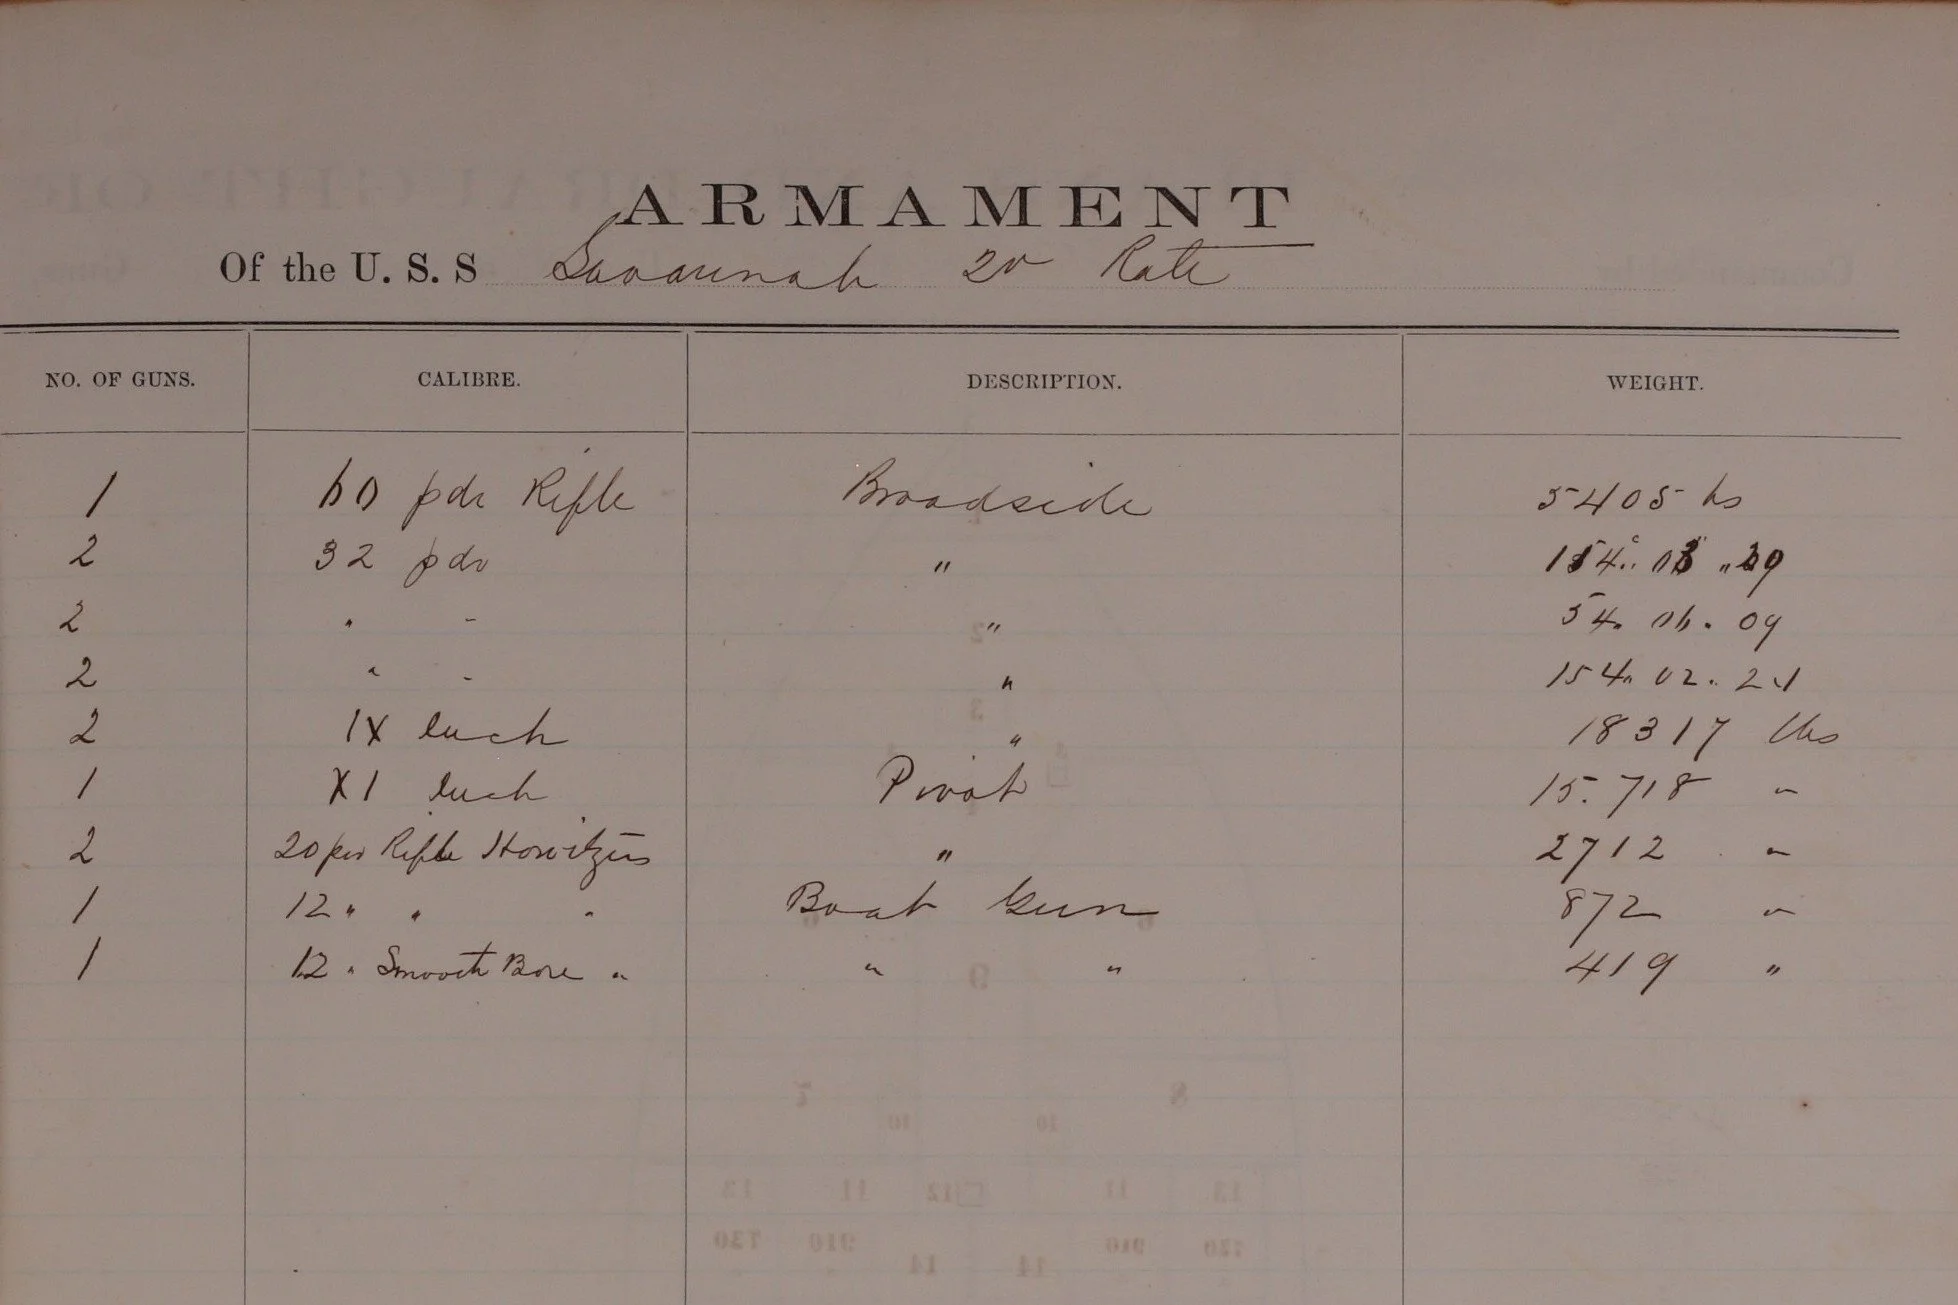 ARMAMENT
Of the U. S. S Savannah 2d Rate
NO. OF GUNS. CALIBRE. DESCRIPTION. WEIGHT.
1 60 pdr Rifle Broadside 5405 lbs
2 32 pdr "
2 " " " 54. 06. 09
2 " " " 154. 02. 21
2 IX Inch " 18317 lbs
1 XI Inch Pivot 15.718 "
2 20 pdr Rifle Howitzers " 2712 "
1 12 " " " Boat Gun 872 "
1 12 " Smooth Bore " " " 419 "